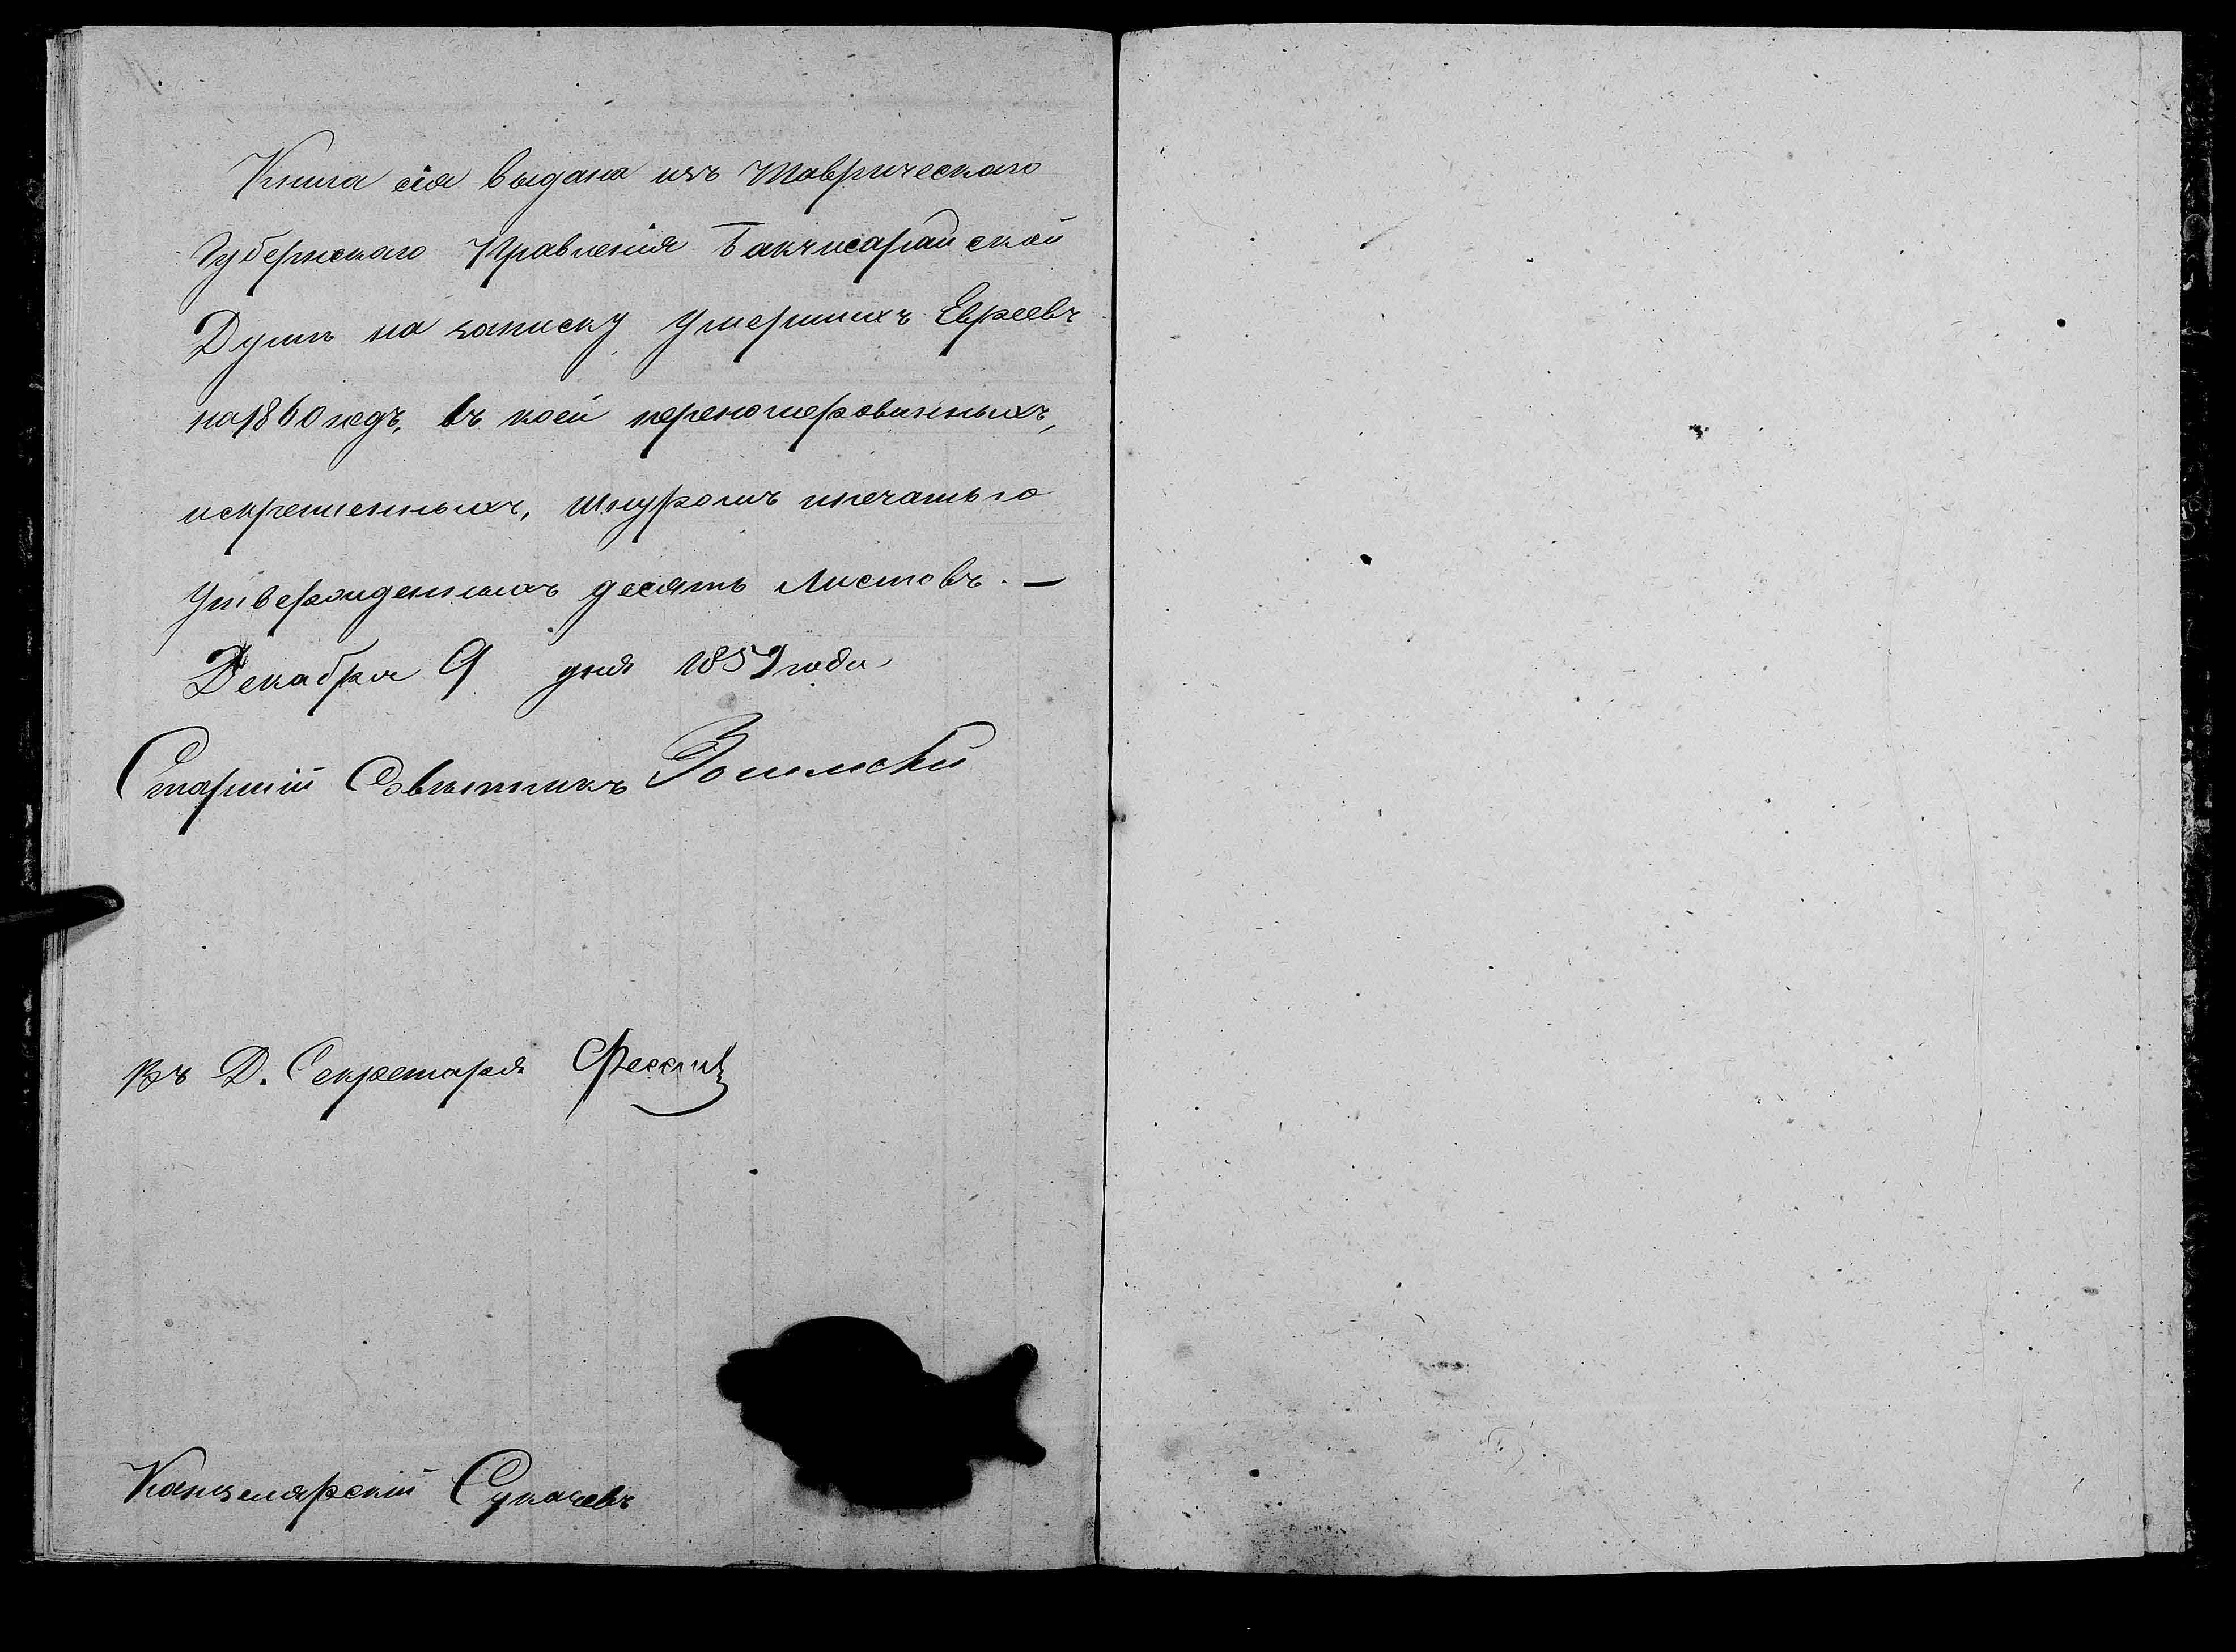 Книга сія выдана изъ Таврическаго
Губернскаго Правленія Бакчисарайской
Думѣ на записку умершихъ Евреевъ
на 1860 годъ, въ коей переномерованныхъ,
искрепленныхъ, шнуромъ ипечатью
утвержденныхъ десять листовъ. —
Декабря 9 дня 1859 года
Старшій Совѣтникъ
Въ Д. Секретаря
Канцелярскій Сукачевъ